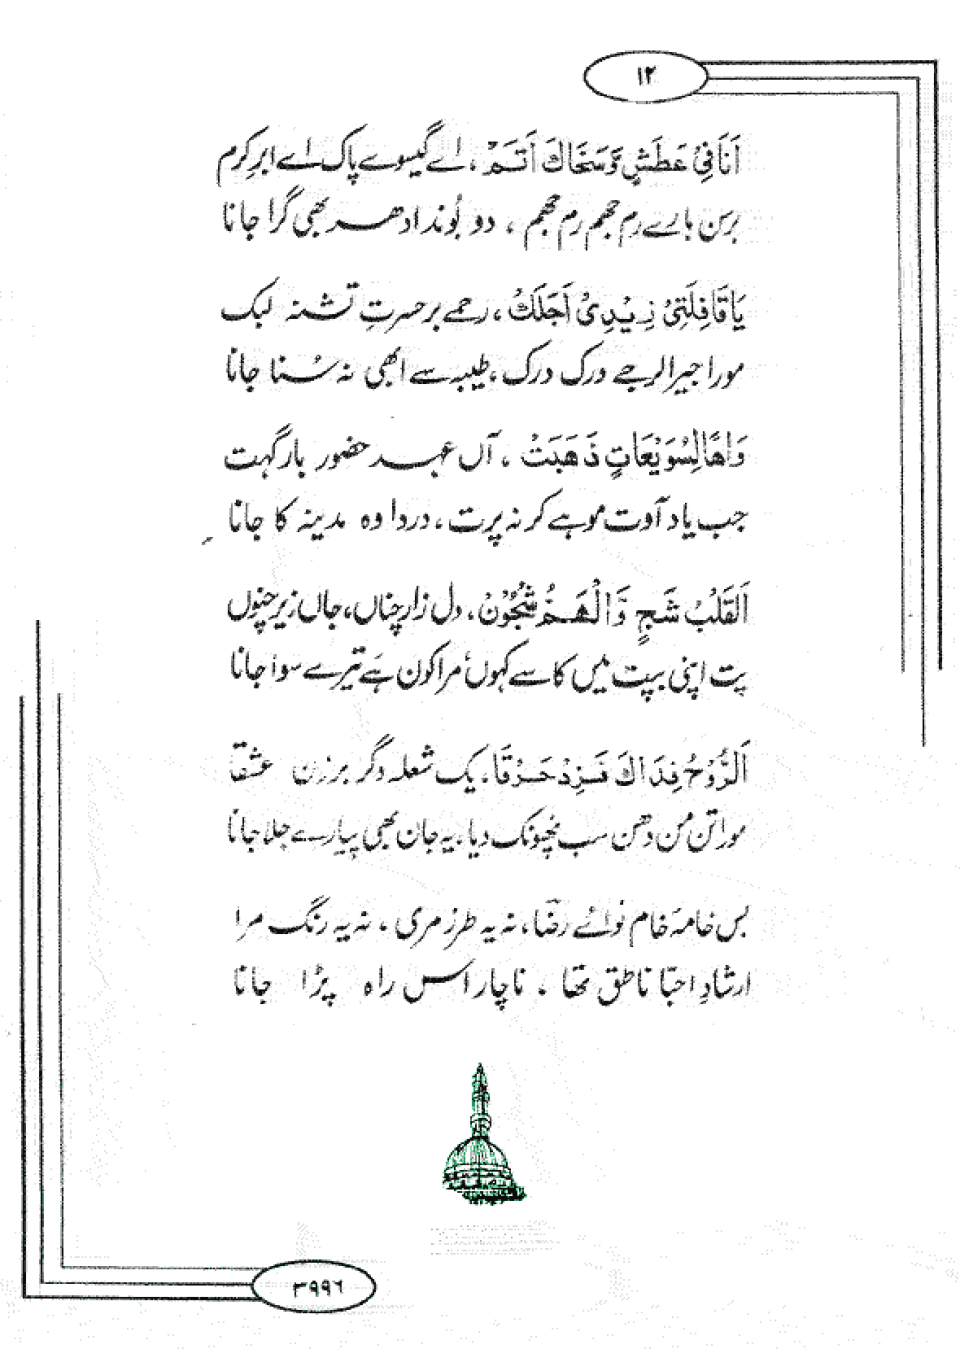 ۱۲
اَنَا فِیْ عَطَشٍ وَّسَخَاكَ اَتَمْ ، اے گیسوے پاک اے ابرِ کرم
برسن ہارے رم جھم رم جھم ، دو بُوند ادھر بھی گرا جانا
یَا قَافِلَتِیْ زِیْدِیْ اَجَلَكْ ، رحمے بر حسرتِ تشنہ لبک
مورا جیرا لرجے درک درک ، طیبہ سے ابھی نہ سُنا جانا
وَاھًا لِسُوَیْعَاتٍ ذَھَبَتْ ، آں عہدِ حضور بار گہت
جب یاد آوت موہے کر نہ پرت ، دردا وہ مدینہ کا جانا
اَلْقَلْبُ شَجٍ وَّالْهَمُّ شُجُوْن ، دل زار چناں ، جاں زیر چنوں
پت اپنی بپت میں کاسے کہوں مرا کون ہَے تیرے سوا جانا
اَلرُّوْحُ فِدَاكَ فَزِدْ حَرْقَا ، یک شعلہ دگر برزن عشقا
مورا تن من دھن سب پھونک دیا ، یہ جان بھی پیارے جلا جانا
بس خامۂ خام نوائے رضؔا ، نہ یہ طرز مری ، نہ یہ رنگ مرا
ارشادِ احبّا ناطق تھا . ناچار اس راہ پڑا جانا
۳۹۹۶